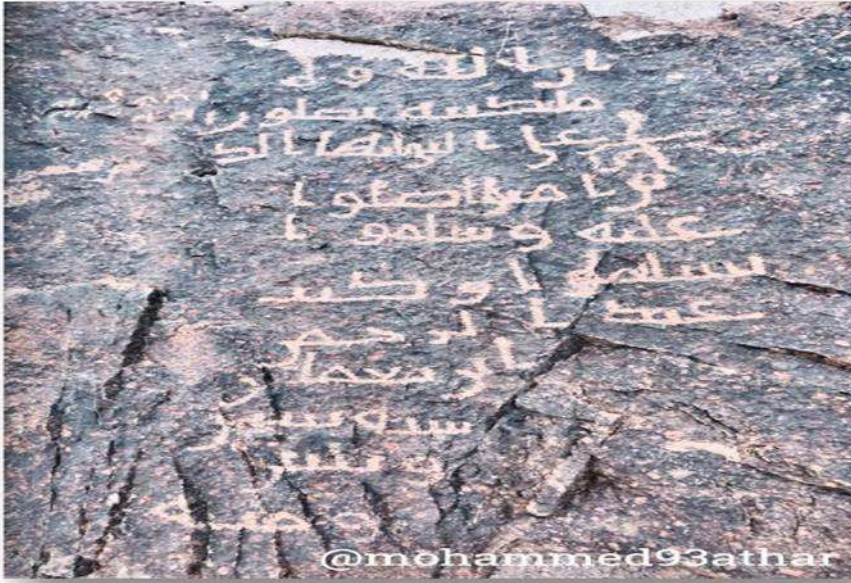 ان الله و
ملئكته يصلون
على النبي يايها الذ
ين امنوا صلوا
عليه وسلموا
تسليما وكتب
عبد الرحمن
سنة
ومئة
@mohammed93athar